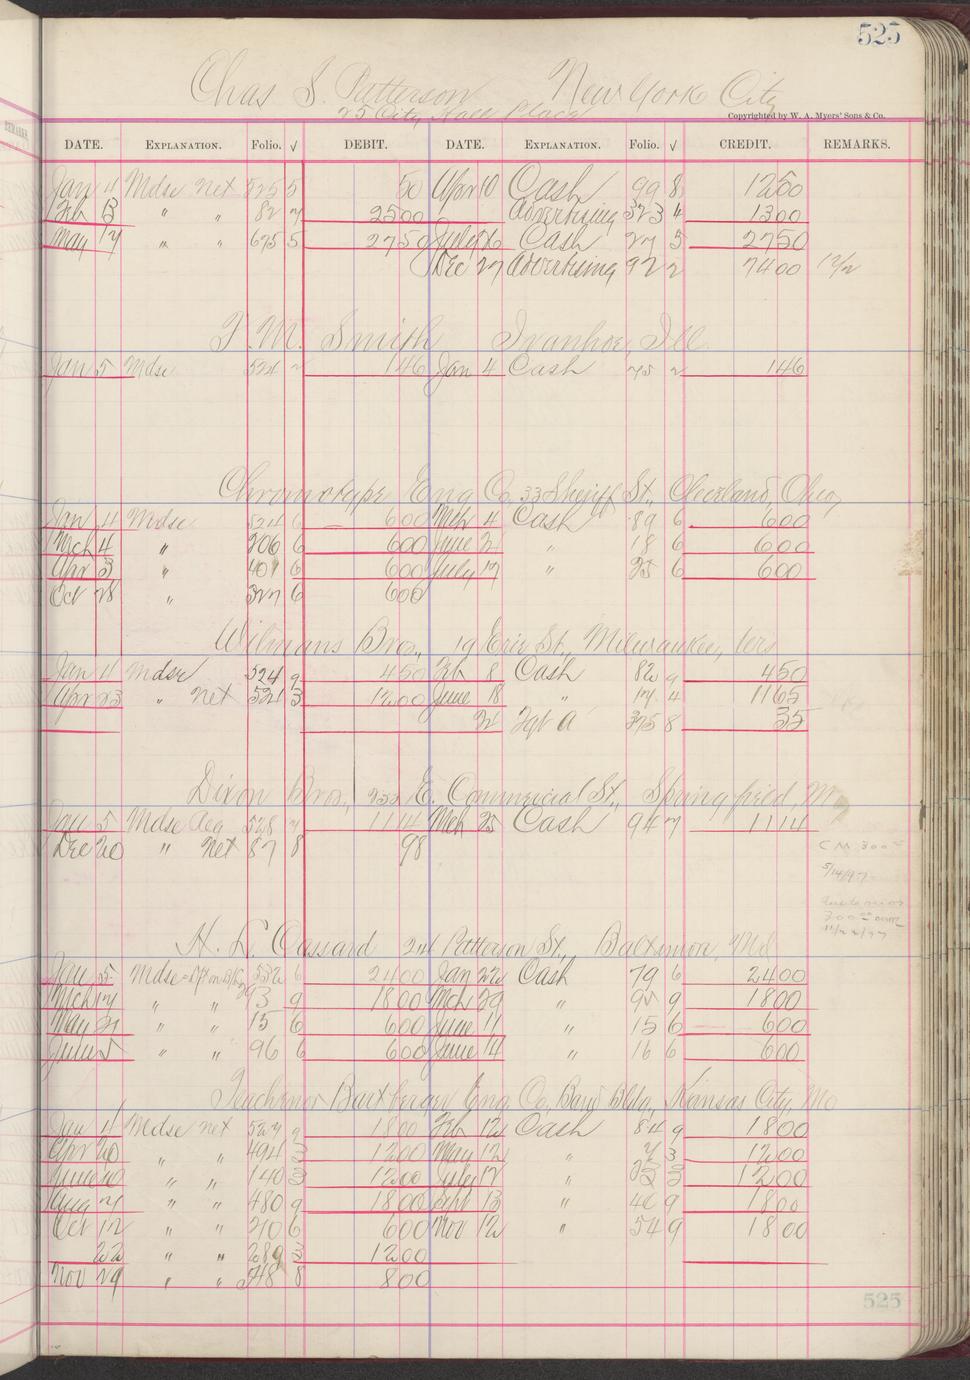 525
Chas S. Patterson New York City
25 City Hall Place
Copyrighted by W. A. Myers' Sons & Co.
DATE. EXPLANATION. Folio. √ DEBIT. DATE. EXPLANATION. Folio. √ CREDIT. REMARKS.
Jan 4 Mdse Net 525 5 50 Apr 10 Cash 99 8 1250
Feb 13 " " 82 7 2500 Advertising 323 4 1300
May 17 " " 675 5 2750 July 26 Cash 27 5 2750
Dec 27 Advertising 92 2 7400 12/2
T. M. Smith Ivanhoe, Ill.
Jan 5 Mdse 524 2 146 Jan 4 Cash 75 2 146
Chromotype Eng Co, 33 Sheriff St., Cleveland, Ohio,
Jan 4 Mdse 524 6 600 Mch 4 Cash 89 6 600
Mch 4 " 206 6 600 June 2 " 18 6 600
Apr 3 " 401 6 600 July 17 " 25 6 600
Oct 28 " 327 6 600
Wilmans Bros., 19 Erie St., Milwaukee, Wis
Jan 4 Mdse 524 9 450 Feb 8 Cash 82 9 450
Apr 23 " Net 521 3 1200 June 18 " 17 4 1165
Fgt A 375 8 35
Dixon Bros., E. Commercial St., Springfield, Mo
Jan 5 Mdse 528 7 1114 Mch 25 Cash 94 7 1114
Dec 20 " Net 87 8 98
CM 300
5/14/97
300
11/22/97
H. L. Cassard Patterson St., Baltimore, Md
Jan 5 Mdse 532 6 2400 Jan 22 Cash 79 6 2400
Mch 17 " " 93 9 1800 Mch 29 " 92 9 1800
May 21 " " 15 6 600 June 11 " 15 6 600
June 5 " " 96 6 600 June 14 " 16 6 600
Teachenor Bartberger Eng. Co., Baird Bldg., Kansas City, Mo
Jan 4 Mdse net 527 9 1800 Feb 12 Cash 84 9 1800
Apr 20 " " 494 3 1200 May 12 " 7 3 1200
June 10 " " 140 3 1200 July 17 " 23 3 1200
Aug 7 " " 480 9 1800 Sept 13 " 40 9 1800
Oct 12 " " 210 6 600 Nov 12 " 54 9 1800
22 " " 289 3 1200
Nov 29 " " 8 800
525